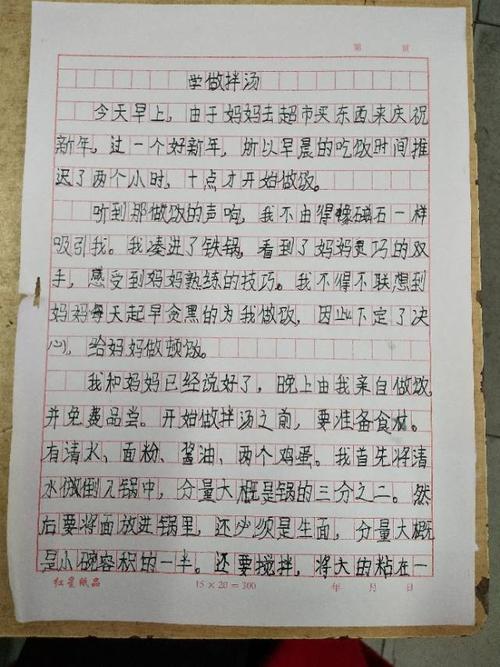 第 页
学做拌汤
今天早上，由于妈妈去超市买东西来庆祝
新年，过一个好新年，所以早晨的吃饭时间推
迟了两个小时，十点才开始做饭。
听到那做饭的声响，我不由得像磁石一样
吸引我。我凑进了铁锅，看到了妈妈灵巧的双
手，感受到妈妈熟练的技巧。我不得不联想到
妈妈每天起早贪黑的为我做饭，因此下定了决
心，给妈妈做顿饭。
我和妈妈已经说好了，晚上由我亲自做饭
并免费品尝。开始做拌汤之前，要准备食材。
有清水、面粉、酱油、两个鸡蛋。我首先将清
水倒入锅中，分量大概是锅的三分之二。然
后要将面放进锅里，还必须是生面，分量大概
是小碗容积的一半。还要搅拌，将大的粘在一
红星纸品 15×20=300 年 月 日